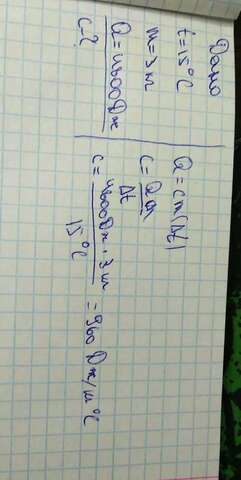 Дано
t=15°C
m=3 кг
Q=4800 Дж
c-?
Q=cm(Δt)
c=Qm/Δt
c=4800 Дж·3 кг/15°C=960 Дж/кг°C